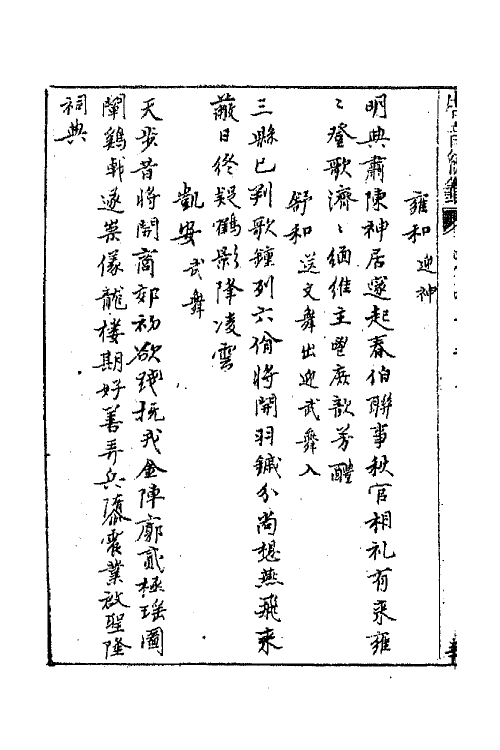 雍和迎神
明典肅陳神居邃起春伯聯事秋官相礼有來雍
〻登歌濟〻緬維主鬯庶歆芳醴
舒和送文舞出迎武舞入
三縣已判歌鐘列六佾將開羽鏚分尚想燕飛來
蔽日終疑鶴影降凌雲
凱安武舞
天步昔將開商郊初欲踐撫戎金陣廓貳極瑤圖
闡鷄戟遂崇儀龍樓期好善弄兵隳震業啟聖隆
祠典